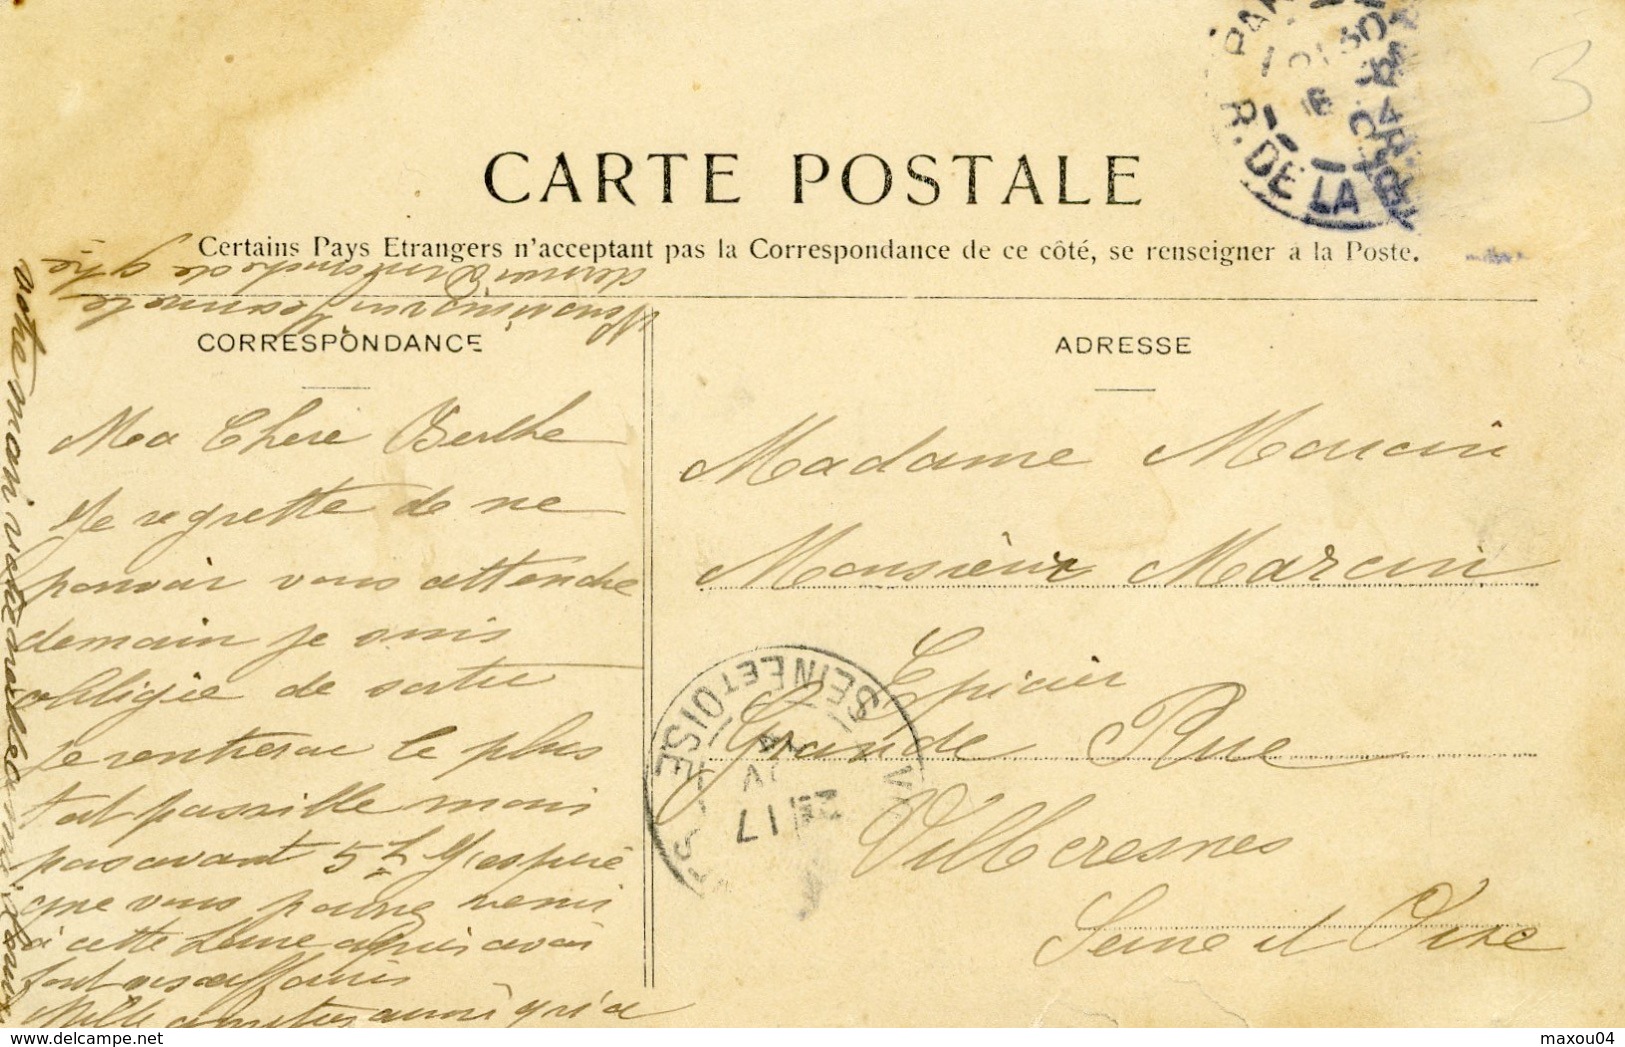 PARIS
R. DE LA
3
CARTE POSTALE
Certains Pays Etrangers n'acceptant pas la Correspondance de ce côté, se renseigner à la Poste.
CORRESPONDANCE
ADRESSE
Ma Chere Berthe
Je regrette de ne
pouvoir vous attendre
demain je suis
obligie de sortir
je rentrerai le plus
tot possible mais
pas avant 5 h J'espere
que vous venir
à cette heure apres avoir
fait vos affaires
Mille amities ainsi qu'a
votre mari votre
Madame Marcin
Monsieur Marcin
Epicier
Grande Rue
Villecresnes
Seine et Oise
SEINE ET OISE
17
delcampe.net
maxou04